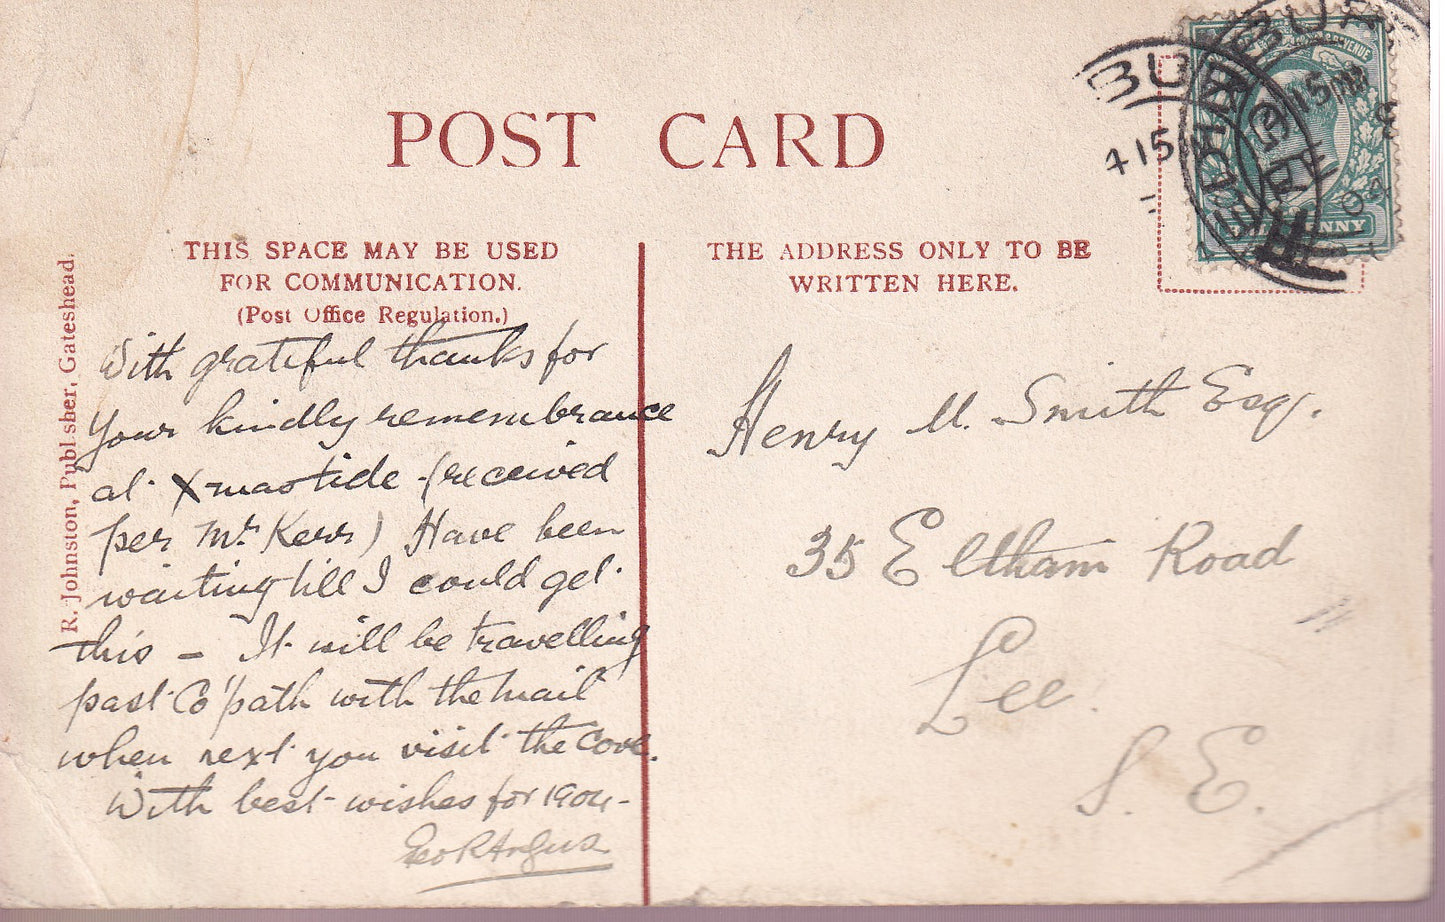 POST CARD
THIS SPACE MAY BE USED
FOR COMMUNICATION.
(Post Office Regulation.)
THE ADDRESS ONLY TO BE
WRITTEN HERE.
R. Johnston, Publisher, Gateshead.
With grateful thanks for
your kindly remembrance
at X-mastide (received
per Mr Kerr) Have been
waiting till I could get
this - It will be travelling
past Co'path with the mail
when next you visit the Cove.
With best wishes for 1904-
Geo R Angus
Henry M. Smith Esqr.
35 Eltham Road
Lee
S. E.
4 15
15 PM
04
REVENUE